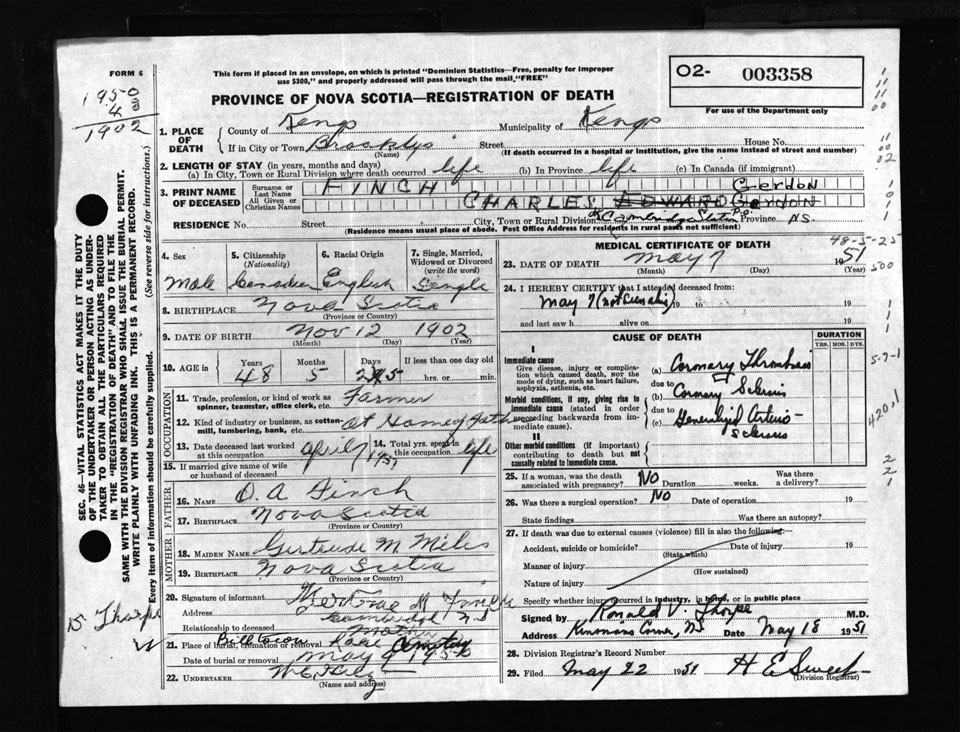 FORM 6
This form if placed in an envelope, on which is printed "Dominion Statistics—Free, penalty for improper
use $300," and properly addressed will pass through the mail, "FREE"
02- 003358
For use of the Department only
1950
4
1902
PROVINCE OF NOVA SCOTIA—REGISTRATION OF DEATH
1. PLACE OF DEATH
County of Kings Municipality of Kings
If in City or Town Brooklyn Street House No.
(Name) (If death occurred in a hospital or institution, give the name instead of street and number)
2. LENGTH OF STAY (in years, months and days)
(a) In City, Town or Rural Division where death occurred life (b) In Province life (c) In Canada (if immigrant)
3. PRINT NAME OF DECEASED
Surname or Last Name FINCH Gordon
All Given or Christian Names CHARLES EDWARD Gordon
RESIDENCE No. Street City, Town or Rural Division Cambridge Station P.O. Province N.S.
(Residence means usual place of abode. Post Office Address for residents in rural parts not sufficient)
4. Sex
Male
5. Citizenship (Nationality)
Canadian
6. Racial Origin
English
7. Single, Married, Widowed or Divorced (write the word)
Single
8. BIRTHPLACE Nova Scotia
(Province or Country)
9. DATE OF BIRTH Nov 12 1902
(Month) (Day) (Year)
10. AGE IN Years Months Days If less than one day old
48 5 25 hrs. or min.
OCCUPATION
11. Trade, profession, or kind of work as spinner, teamster, office clerk, etc. Farmer
12. Kind of industry or business, as cotton-mill, lumbering, bank, etc. at Home of Father
13. Date deceased last worked at this occupation April 1951
14. Total yrs. spent in this occupation life
15. If married give name of wife or husband of deceased
FATHER
16. NAME O. A Finch
17. BIRTHPLACE Nova Scotia
(Province or Country)
MOTHER
18. MAIDEN NAME Gertrude M. Miles
19. BIRTHPLACE Nova Scotia
(Province or Country)
20. Signature of informant Gertrude M Finch
Address Cambridge NS
Relationship to deceased Mother
21. Place of burial, cremation or removal Billtown Cemetery
Date of burial or removal May 9 1950
22. UNDERTAKER
(Name and address)
MEDICAL CERTIFICATE OF DEATH
48-5-25
23. DATE OF DEATH May 7 1951
(Month) (Day) (Year)
24. I HEREBY CERTIFY that I attended deceased from:
May 7 (not seen alive) 19 to 19
and last saw h alive on 19
CAUSE OF DEATH
DURATION
YRS. MOS. DYS.
I
Immediate cause
Give disease, injury or complication which caused death, NOT the mode of dying, such as heart failure, asphyxia, asthenia, etc.
(a) Coronary Thrombosis
due to
Morbid conditions, if any, giving rise to immediate cause (stated in order proceeding backwards from immediate cause).
(b) Coronary Sclerosis
due to
(c) Generalized Arterio-
sclerosis
II
Other morbid conditions (if important) contributing to death but not causally related to immediate cause.
5-7-1
420.1
25. If a woman, was the death associated with pregnancy? No Duration weeks. Was there a delivery?
26. Was there a surgical operation? No Date of operation 19
State findings Was there an autopsy?
27. If death was due to external causes (violence) fill in also the following:
Accident, suicide or homicide? Date of injury 19
(State which)
Manner of injury
(How sustained)
Nature of injury
Specify whether injury occurred in industry, in home, or in public place
Signed by Ronald V. Thorpe M.D.
Address Kinsmans Corner, NS Date May 18 1951
28. Division Registrar's Record Number
29. Filed May 22 1951 H E Sweet
(Division Registrar)
SEC. 46—VITAL STATISTICS ACT MAKES IT THE DUTY
OF THE UNDERTAKER OR PERSON ACTING AS UNDER-
TAKER TO OBTAIN ALL THE PARTICULARS REQUIRED
IN THE "REGISTRATION OF DEATH" AND TO FILE THE
SAME WITH THE DIVISION REGISTRAR WHO SHALL ISSUE THE BURIAL PERMIT.
WRITE PLAINLY WITH UNFADING INK. THIS IS A PERMANENT RECORD.
Every item of information should be carefully supplied. (See reverse side for instructions.)
Dr Thorpe